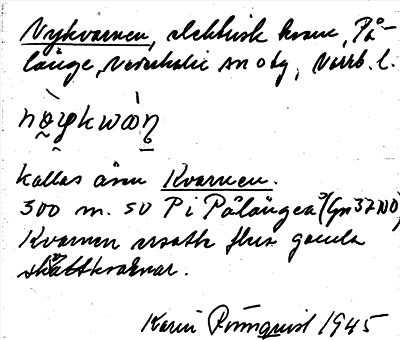 Nykvarnen, elektrisk kvarn, På-
länge, Nederkalix sn o tg, Norrb. l.
kallas även Kvarnen.
300 m. SV P i Pålänge (Gn 37 NO)
Kvarnen ersatte flera gamla
skvaltkvarnar.
Karin 1945